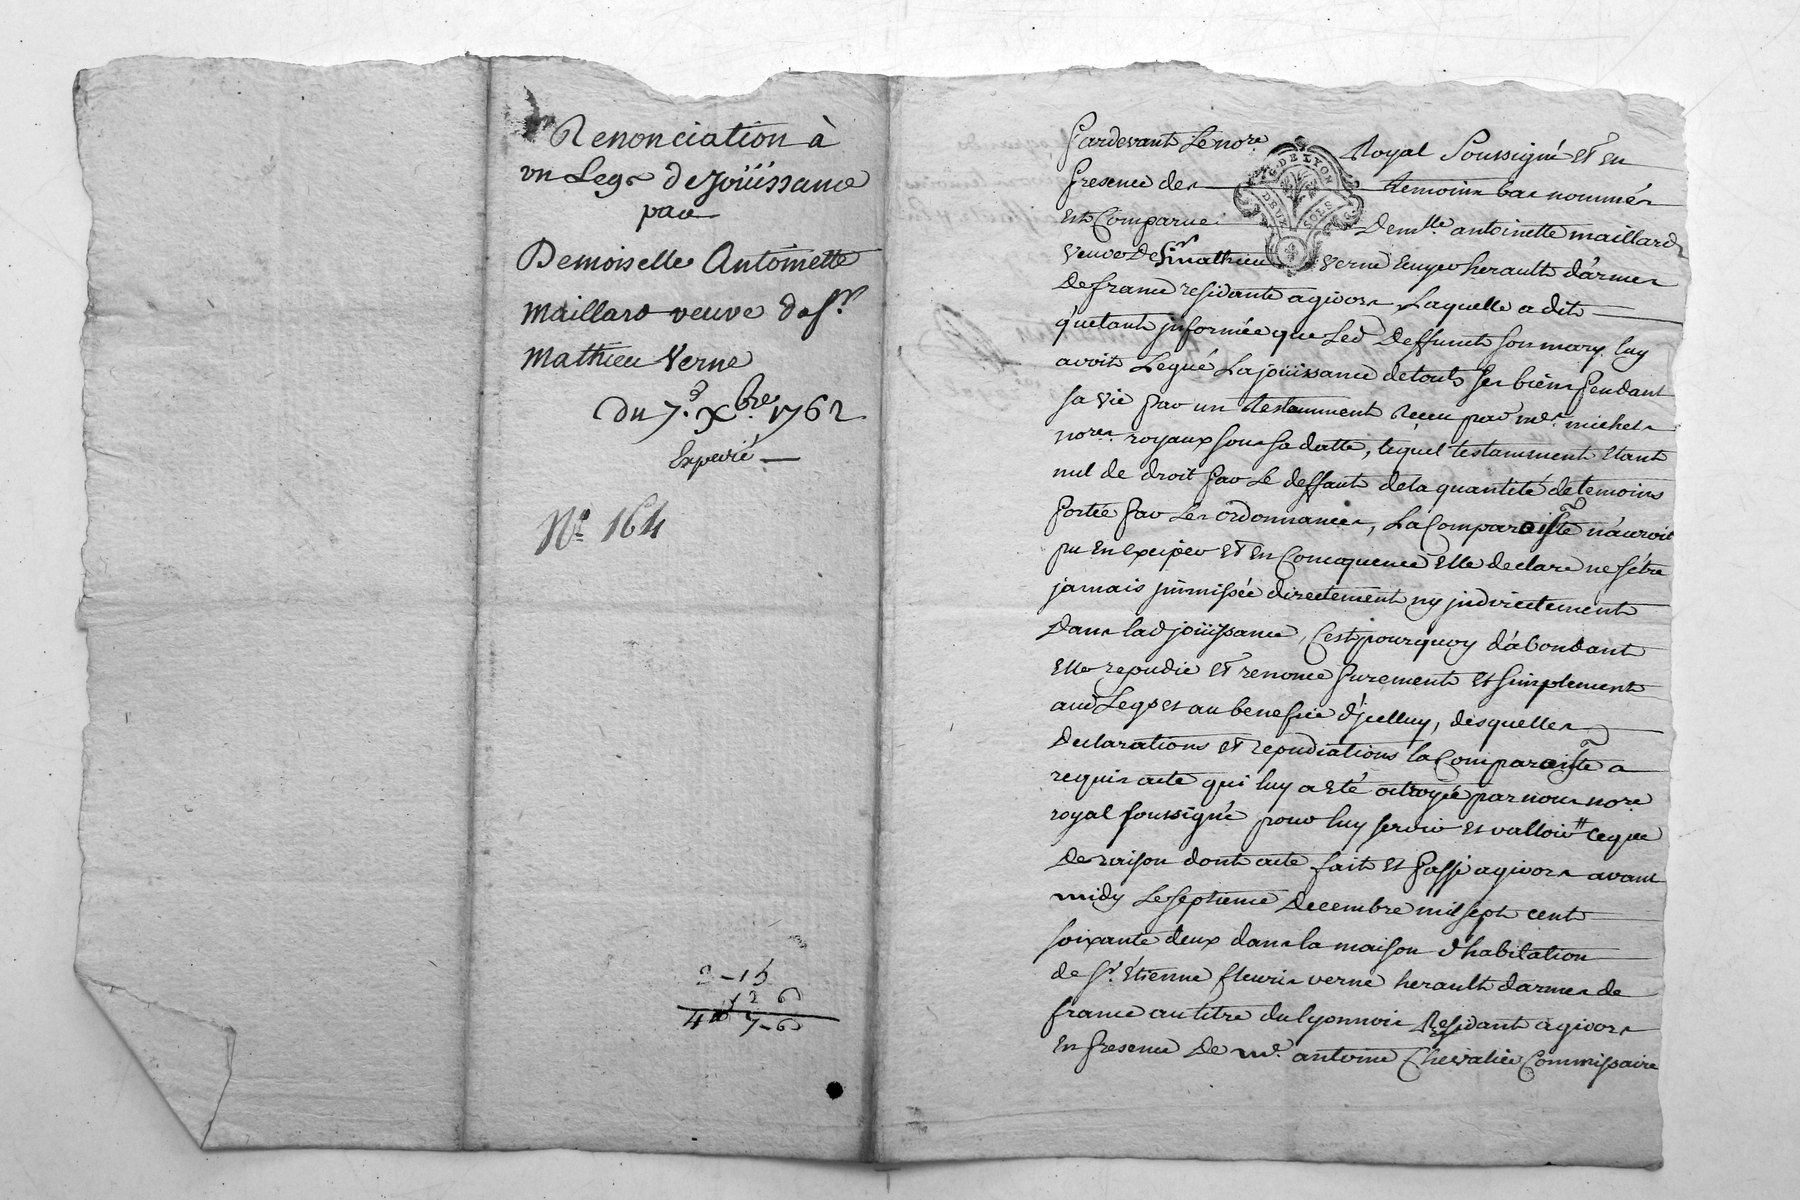 Renonciation à
un Legs de Joüissance
par
Demoiselle Antoinette
Maillard veuve de Sr.
Mathieu Verne
Du 7e. Xbre 1762
Expedié
No. 164
2-15
12 6
7-6
Pardevant Le nore. Royal Soussigné Et En
Presence des temoins bas nommés
Est Comparue Demlle antoinette maillard
Veuve De Sr mathieu Verne herault d'armes
De france residante a givors, Laquelle a dit
qu'etant informée que Led Deffunct Son mary luy
avoit Legué La joüissance de touts Ses biens Pendant
Sa Vie Par un testamment Receu par mes. michel
nores royaux Sous Sa datte, lequel testamment Etant
nul de droit Par Le deffaut dela quantité de temoins
Portée Par Les ordonnances, La Comparoiste n'auroit
pu En exciper Et En Consequence Elle declare ne S'étre
jamais immissée directement ny indirectement
Dans lad joüissance, C'est pourquoy d'abondant
Elle repudie Et renonce Purement Et Simplement
aud Legs Et au benefice d'jcelluy, desquelles
Declarations Et repudiations la Comparoiste a
requis acte qui luy a Eté octroyé par nous nore
royal Soussigné pour luy Servir Et valloir ce que
De raison dont acte fait Et Passé a givors avant
midy Le Septieme Decembre mil Sept cent
Soixante deux dans la maison d'habitation
de Sr. Etienne fleuris verne herault darmes de
france au titre du lyonnois Residant a givors
En Presence De me. antoine Chevalier Commissaire
G. DE LYON
DEUX SOLS